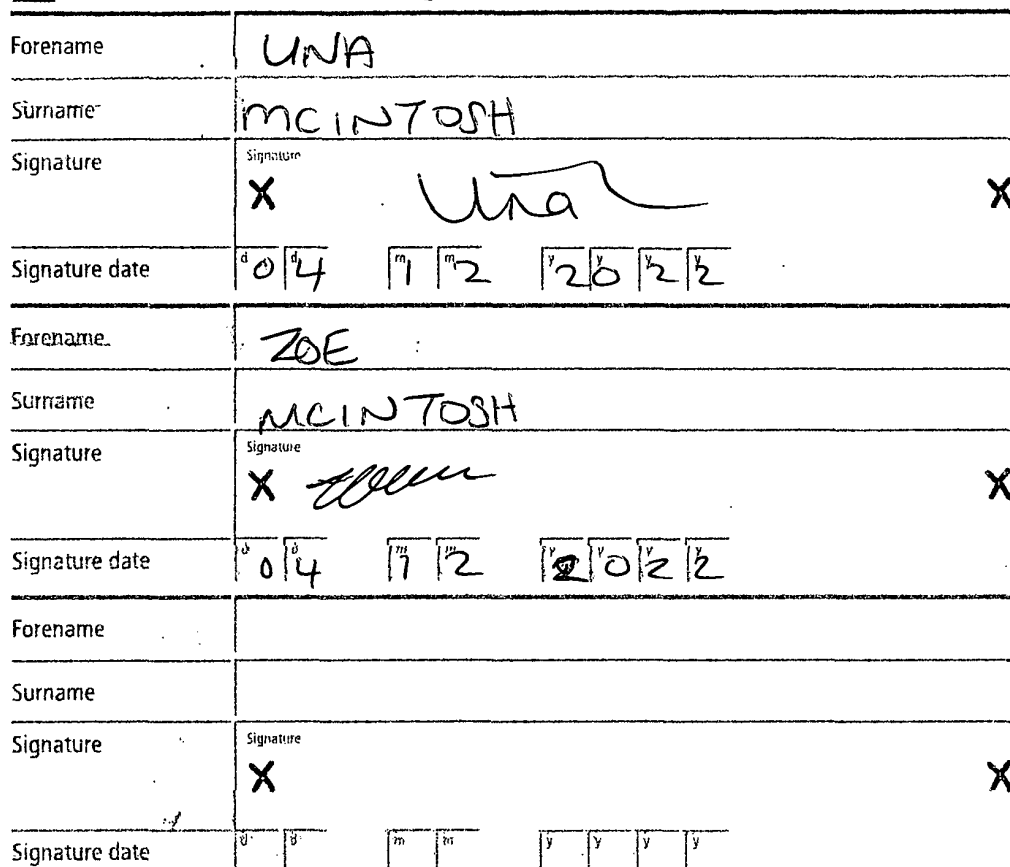 Forename UNA
Surname MCINTOSH
Signature Signature
X Una X
Signature date d0 d4 m1 m2 y2 y0 y2 y2
Forename ZOE
Surname MCINTOSH
Signature Signature
X X
Signature date d0 d4 m1 m2 y2 y0 y2 y2
Forename
Surname
Signature Signature
X X
Signature date d d m m y y y y